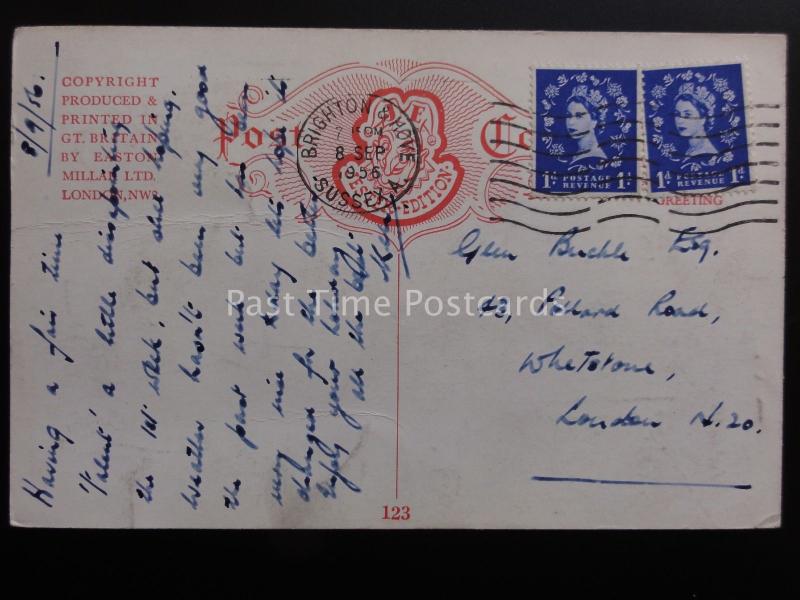 COPYRIGHT
PRODUCED &
PRINTED IN
GT. BRITAIN
BY EASTON
MILLAR LTD.
LONDON, NW3
Post
BRIGHTON & HOVE
PM
8 SEP
1956
SUSSEX
A
EDITION
POSTAGE
1D REVENUE 1D
POSTAGE
1D REVENUE 1D
GREETING
8/9/56.
Having a fair time
'Talent' a little disappointing
the 1st week, but still hoping.
Weather hasn't been very good
the past week but has been
very nice today let's hope it
changes for the better
your holiday
all the best
Glen Buckle Esq.
Pollard Road,
Whetstone,
London N.20.
Past Time Postcards
123